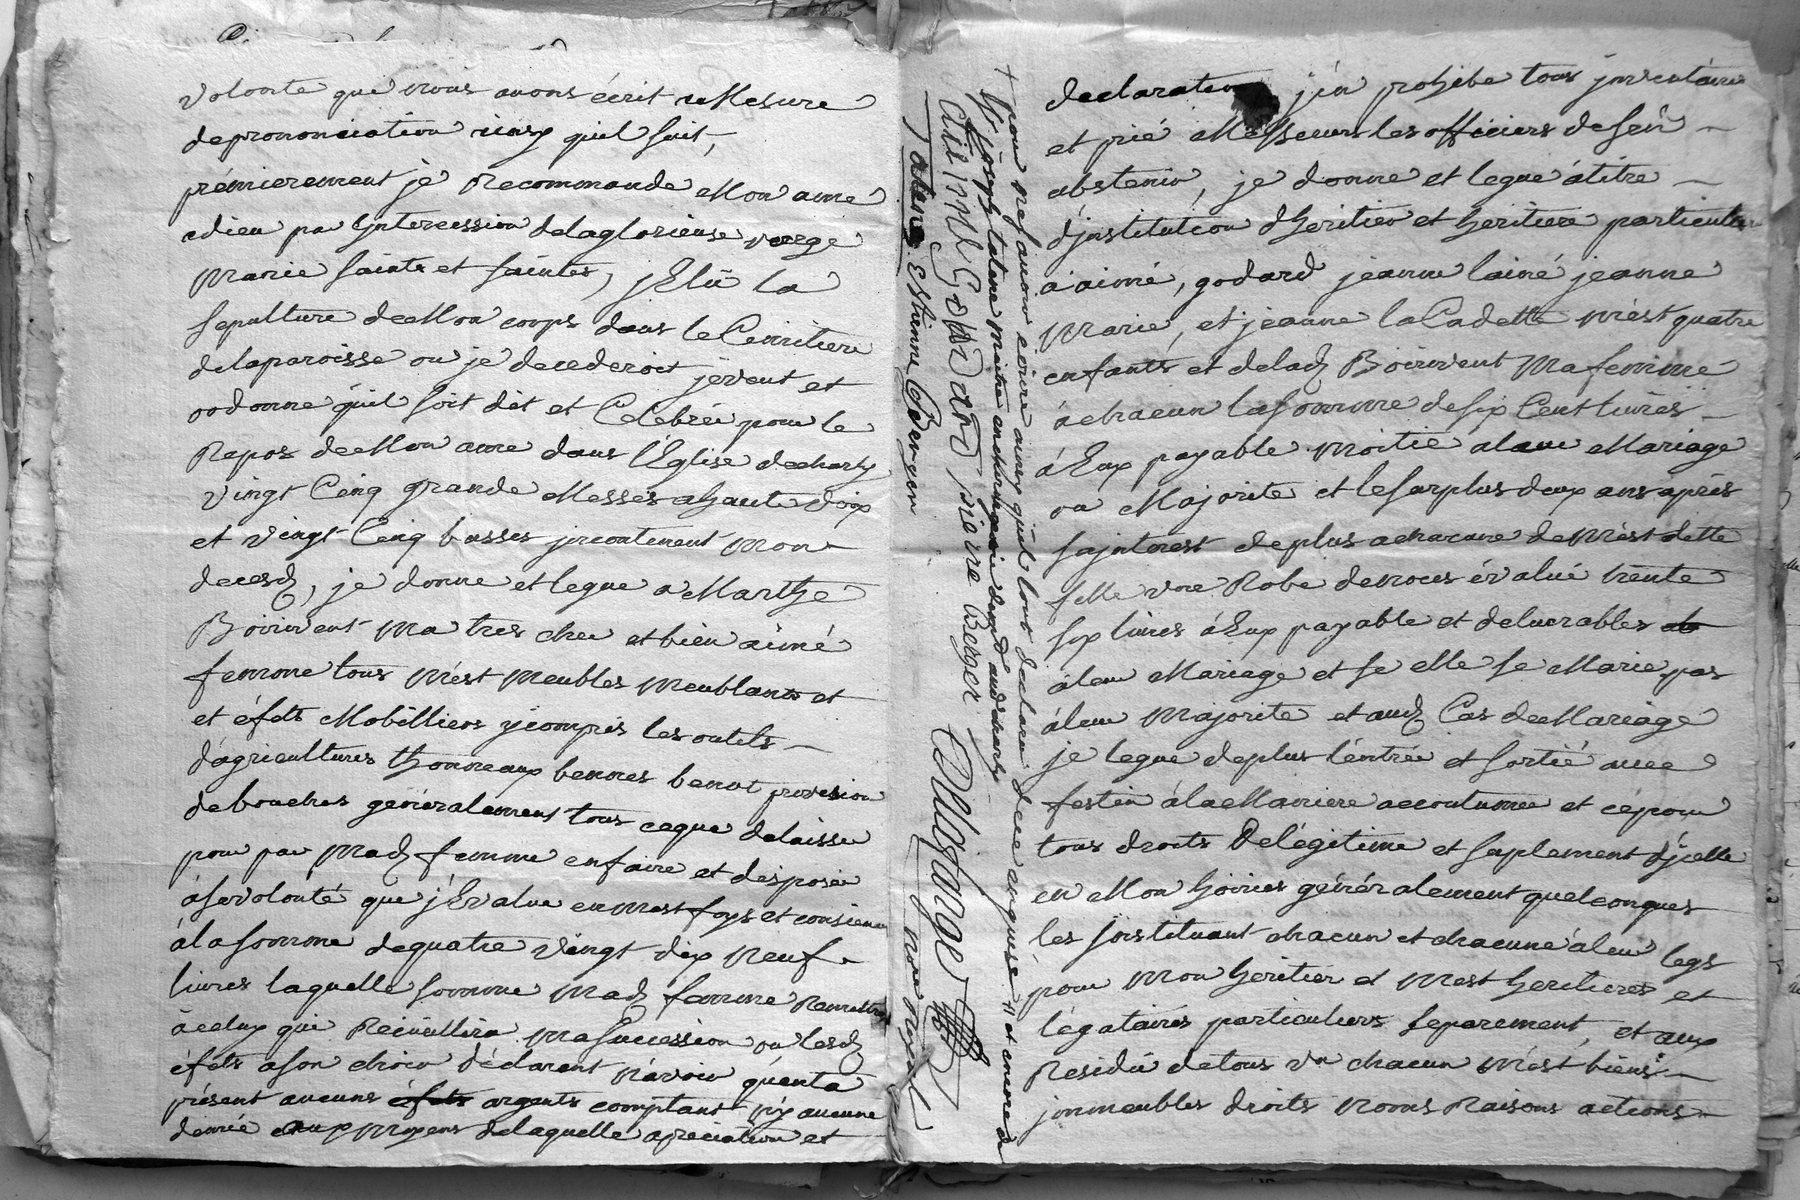 volonte que nous avons écrit aMesure
deprononciation ainsy quil suit,
prémierement je Recommande aMon ame
adieu par Lyntercession delaglorieuse vierge
Marie saints et saintes, jElü la
sepulture deMon corps dans leCimitiere
delaparoisse ou je decederoit jeveut et
ordonne quil soit dit et Celebrée pour le
Repos deMon ame dans lEglise decharly
vingt Cinq grande Messes ahaute voix
et vingt Cinq basses jncontinent mon
deces, je donne et legue a Marthe
Boiron Ma tres cher et bien aimé
femme tous mést meubles meublants et
et éfets Mobilliers ycompris les outils
dágricultures thonneaux bennes benot provision
debouches généralement tous ceque delaisse
pour par Mad femme enfaire et disposer
ásavolonté que jEvalue enmest foys et consience
álasomme dequatre vingt dix neuf
livres laquelle somme Mad femme Remettra
áceluy qui Recüeillira masuccession ou lesd
éfets ason choix déclarant návoir quenta
présent aucuns argents comptant ny aucune
denrée aux moyens delaquelle apréciation et
Tatene Estienne Bergeron
GONARD pierre Berger Delafarge
no.re Royal
h joseph tatene maitre
+ pour nef avoir écrire ainsy quil lont declaré dece enquis et
declaration jén prohibe tous jnventaire
et prié Messieurs les officiers desén
abstenir, je donne et legue átitre
djnstitution dheritier et heritiere particuliere
áaimé, godard jeanne lainé jeanne
Marie, et jeanne laCadette mést quatre
enfants et delad Boiron Mafemme
áchacun lasomme desix Cent livres
á Eux payable moitié aleur Mariage
ou Majorité et lesurplus deux ans aprés
sajnterest deplus achacune demést dette
fille une Robe denoces évalué trente
six livres á Eux payable et deluvrables
áleur Mariage et se elle se Marie pas
áleur Majorité et aud Cas deMariage
je legue deplus léntrée et sortié avec
festin álaManiere accoutumée et cépour
tous droits Delégitime et suplement djcelle
en Mon hoiries généralement quelconques
les jnstituant chacun et chacune áleur legs
pour Mon heritier et mest heritieres et
légataires particuliers separement, et aux
Residü detous un chacun mést biens
jmmeubles droits noms Raisons actions